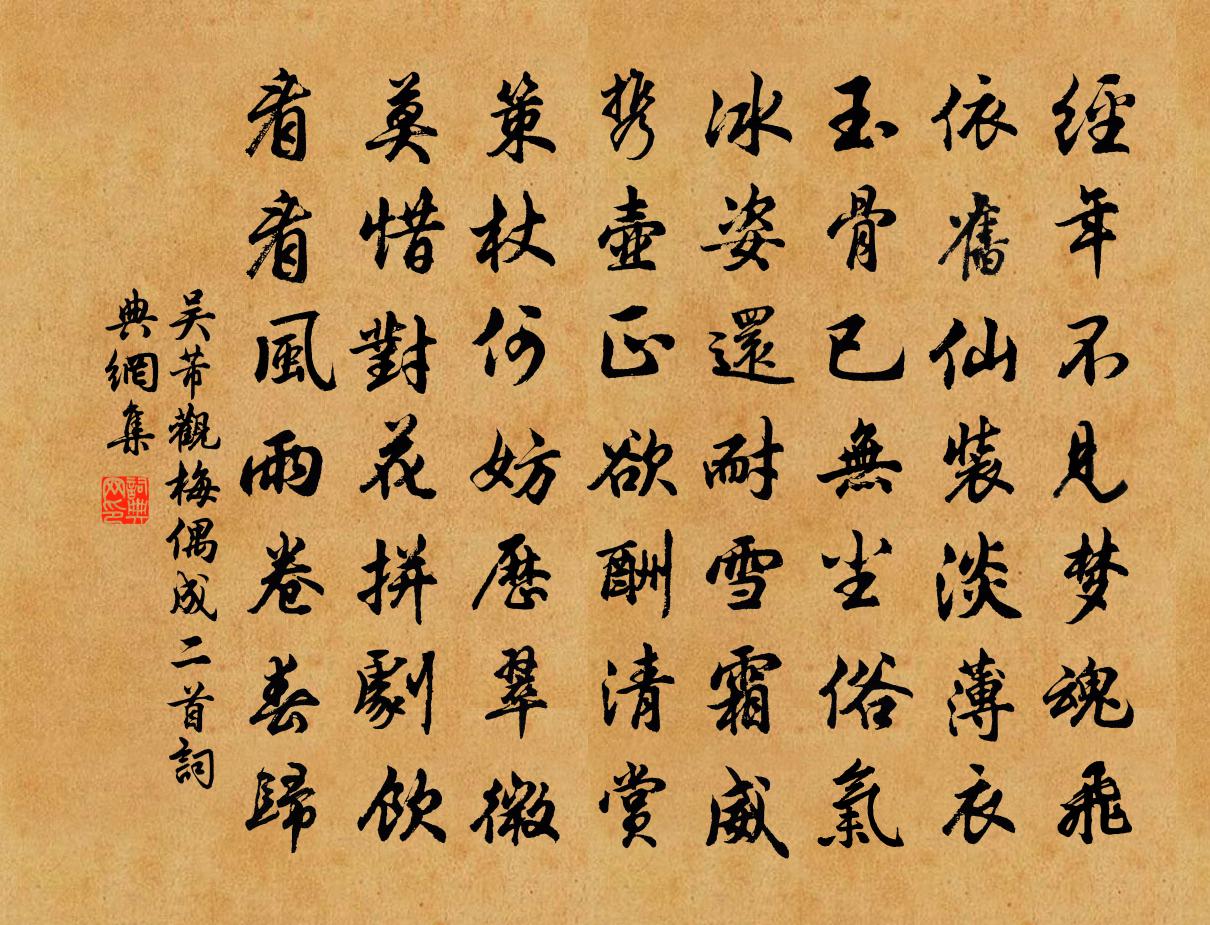 經年不見梦魂飛
依舊仙裝淡薄衣
玉骨已無尘俗氣
冰姿還耐雪霜威
携壺正欲酬清賞
策杖何妨歷翠微
莫惜對花拼劇飲
看看風雨卷春歸
吴芾觀梅偶成二首詞
典網集
詞典网印